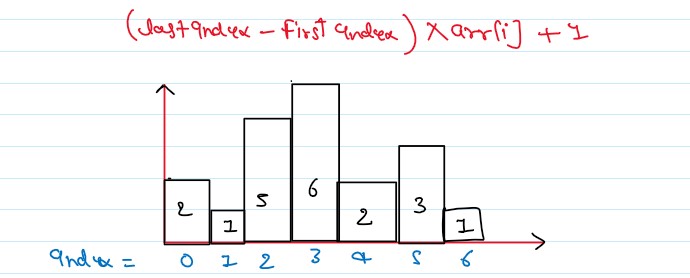 (last index - first index) × arr[i] + 1
2 1 5 6 2 3 1
index = 0 1 2 3 4 5 6